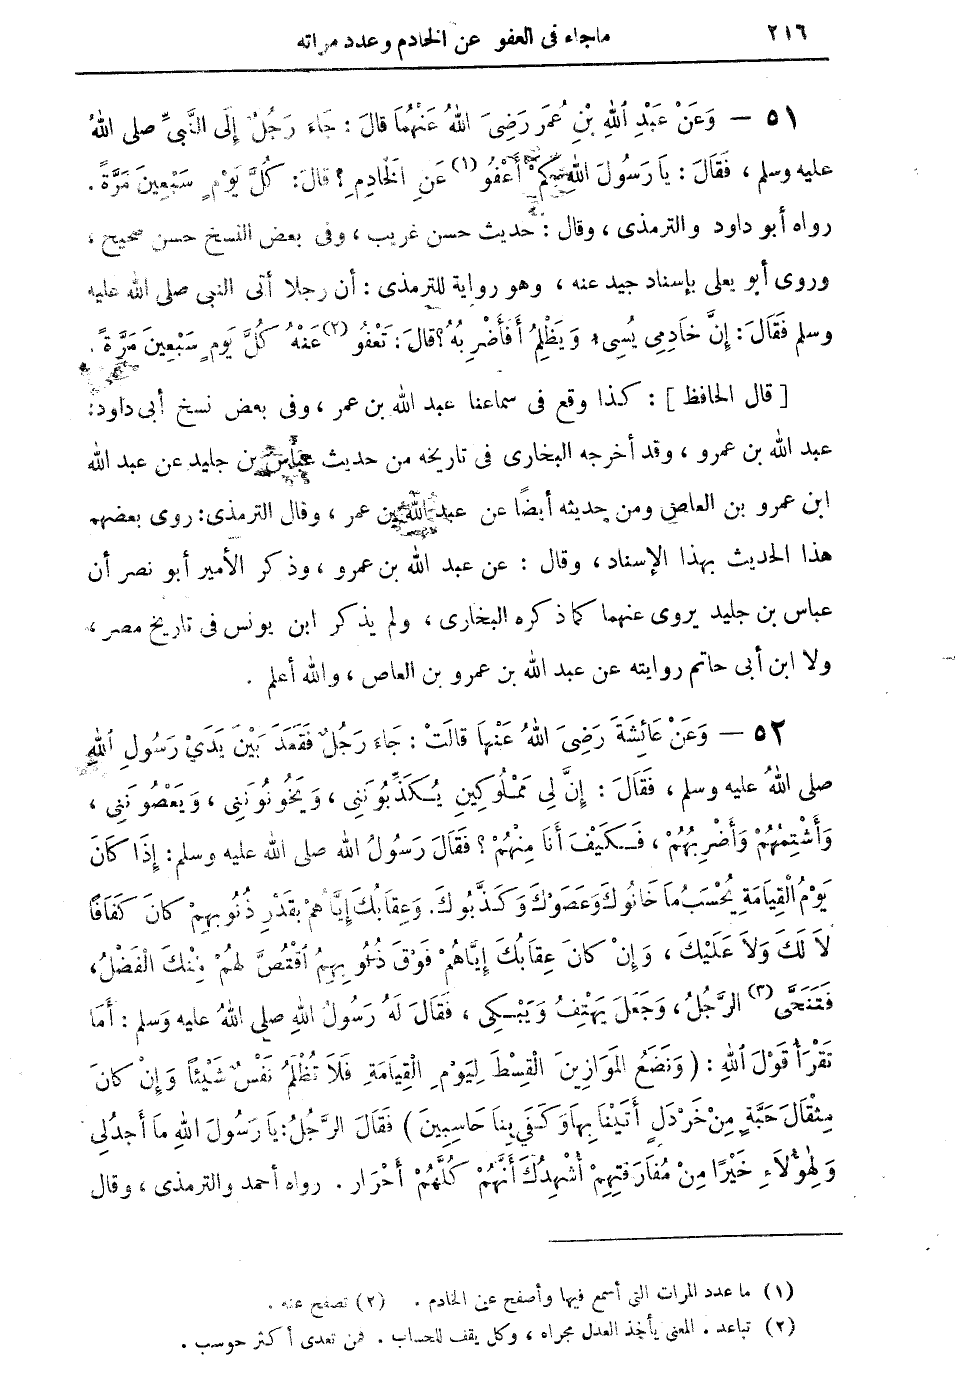 ٢١٦ ماجاء فى العفو عن الخادم وعدد مراته
٥١ – وَعَنْ عَبْدِ اللهِ بْنِ عُمَرَ رَضِىَ اللهُ عَنْهُمَا قالَ : جَاءَ رَجُلٌ إِلَى النَّبِىِّ صلى اللهُ
عليه وسلم ، فَقَالَ : يَا رَسُولَ اللهِ كَمْ أَعْفُو (١) عَنِ الْخَادِمِ ؟ قالَ: كُلَّ يَوْمٍ سَبْعِينَ مَرَّةً .
رواه أبو داود والترمذى ، وقال : حديث حسن غريب ، وفى بعض النسخ حسن صحيح ،
وروى أبو يعلى بإسناد جيد عنه ، وهو رواية للترمذى : أن رجلا أتى النبى صلى الله عليه
وسلم فَقَالَ : إِنَّ خَادِمِى يُسِىءُ وَيَظْلِمُ أَفَأَضْرِبُهُ؟ قالَ : تَعْفُو (٢) عَنْهُ كُلَّ يَوْمٍ سَبْعِينَ مَرَّةً .
[ قال الحافظ ] : كذا وقع فى سماعنا عبد الله بن عمر ، وفى بعض نسخ أبى داود:
عبد الله بن عمرو ، وقد أخرجه البخارى فى تاريخه من حديث عباس بن جليد عن عبد الله
ابن عمرو بن العاص ومن حديثه أيضًا عن عبد الله بن عمر ، وقال الترمذى: روى بعضهم
هذا الحديث بهذا الإسناد ، وقال : عن عبد الله بن عمرو ، وذكر الأمير أبو نصر أن
عباس بن جليد يروى عنهما كما ذكره البخارى ، ولم يذكر ابن يونس فى تاريخ مصر ،
ولا ابن أبى حاتم روايته عن عبد الله بن عمرو بن العاص ، والله أعلم .
٥٢ – وَعَنْ عَائِشَةَ رَضِىَ اللهُ عَنْهَا قالَتْ : جَاءَ رَجُلٌ فَقَعَدَ بَيْنَ يَدَيْ رَسُولِ اللهِ
صلى اللهُ عليه وسلم ، فَقَالَ : إِنَّ لِى مَمْلُوكِينِ يُكَذِّبُونَنِى ، وَيَخُونُونَنِى ، وَيَعْصُونَنِى ،
وَأَشْتِمُهُمْ وَأَضْرِبُهُمْ ، فَكَيْفَ أَنَا مِنْهُمْ ؟ فَقَالَ رَسُولُ الله صلى الله عليه وسلم: إِذَا كَانَ
يَوْمُ الْقِيَامَةِ يُحْسَبُ مَا خَانُوكَ وَعَصَوْكَ وَكَذَّبُوكَ. وَعِقَابُكَ إِيَّاهُمْ بِقَدْرِ ذُنُوبِهِمْ كانَ كَفَافًا
لاَ لَكَ وَلاَ عَلَيْكَ ، وَإِنْ كانَ عِقَابُكَ إِيَّاهُمْ فَوْقَ ذُنُوبِهِمُ اقْتُصَّ لَهُمْ مِنْكَ الْفَضْلُ،
فَتَنَحَّى (٣) الرَّجُلُ ، وَجَعَلَ يَهْتِفُ وَيَبْكِى ، فَقَالَ لَهُ رَسُولُ اللهِ صلى اللهُ عليه وَسلم : أَمَا
تَقْرَأُ قَوْلَ اللهِ : ( وَنَضَعُ الْمَوَازِينَ الْقِسْطَ لِيَوْمِ الْقِيَامَةِ فَلَا تُظْلَمُ نَفْسٌ شَيْئًا وَإِنْ كانَ
مِثْقَالَ حَبَّةٍ مِنْ خَرْدَلٍ أَتَيْنَا بِهَا وَكَفَى بِنَا حَاسِبِينَ ) فَقَالَ الرَّجُلُ: يَا رَسُولَ اللهِ مَا أَجِدُ لِى
وَلِهَؤُلَاءِ خَيْرًا مِنْ مُفَارَقَتِهِمْ أُشْهِدُكَ أَنَّهُمْ كُلَّهُمْ أَحْرَارٌ . رواه أحمد والترمذى ، وقال
(١) ما عدد المرات التى أسمع فيها وأصفح عن الخادم . (٢) تصفح عنه .
(٢) تباعد . المعنى يأخذ العدل مجراه ، وكل يقف للحساب . فمن تعدى أكثر حوسب .